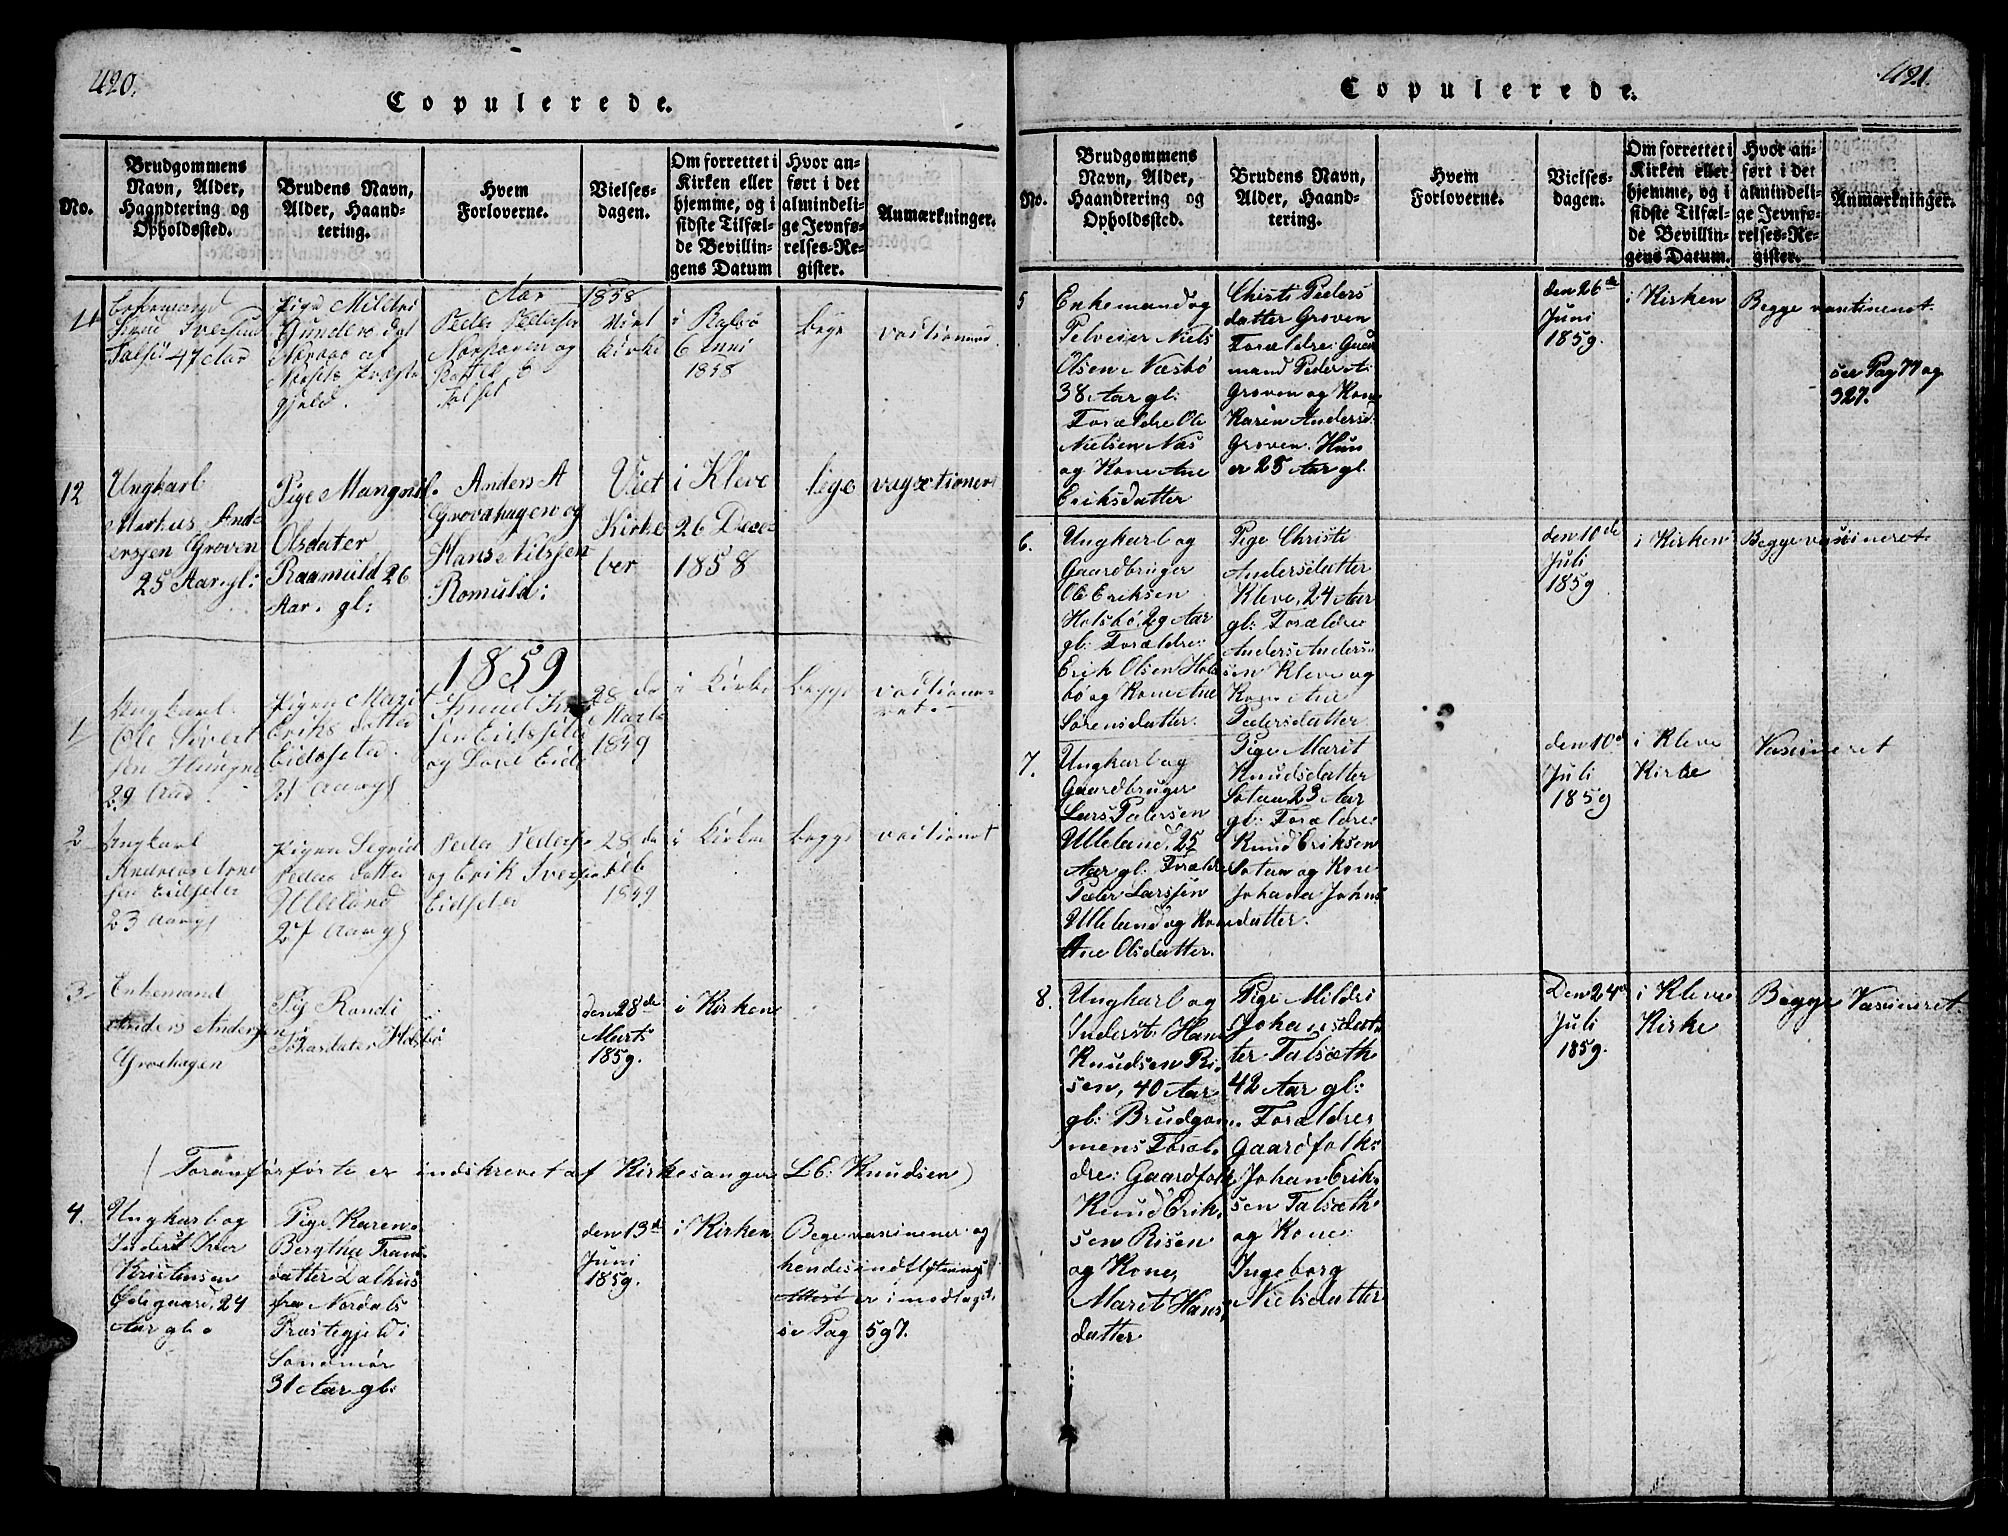 420.
Copulerede.
No.
Brudgommens
Navn, Alder,
Haandtering og
Opholdssted.
Brudens Navn,
Alder, Haand-
tering.
Hvem
Forloverne.
Vielses-
dagen.
Om forrettet i
Kirken eller
hjemme, og i
sidste Tilfæl-
de Bevillin-
gens Datum
Hvor an-
ført i det
almindeli-
ge Jevnfø-
relses-Re-
gister.
Anmærkninger.
Aar 1858
11
Enkemand
Iversen
47 Aar
Pige Mildri
Gunders
gjeld.
Peder Pederser
og
Viet
Kirke
i
6 Juni
1858
bege
vaxtionerd.
12
Ungkarl
Markus And-
ersjen Groven
25 Aar gl:
Pige Mangnil.
Olsdater
Raamuld 26
Aar. gl:
Anders A
Grovahagen og
Hans Nilsjen
Romuld:
Viet
Kirke
ber
i Kleve
26 Dece
1858
bege
vagxtioneret
1859
1
Ungkarl.
Ole Sivert
sen
29 Aar
Pigen Marit
Eriks datter
Eidsseter.
21 Aargl
Knud
sen Eidsseter
og
28 de
Marts
1849
i Kirke
begge
vactione-
ret.
2
Ungkarl
Andreas Arne
sen Eidseter
23 Aargl
Pigen Segrid
Peders datter
Ulleland
27 Aargl
Peder Peders
og Erik Iversen
Eidseter
28 de
Feb
1849
i Kirke
begge
vactionet
3
Enkemand
Anders Andersen
Grovhagen
Pig Randi
Johasdater Holsbø
den 28de
Marts
1859.
i Kirken
(Foranførførte er indskrevet af Kirkesanger L. E: Knudsen)
4.
Ungkarl og
Inderst Iver
Kristensen
Ødegaard, 24
Aar gl.
Pige Karen
Bergtha Frans
datter Dalhus
fra Nordals
Præstegjeld i
Søndmør
31 Aar gl:
den 13de
Juni
1859.
i Kirken
Bege vaxinener og
hendes indflytnings
Attest er i modtaget
se Pag 597.
421.
Copulerede.
No.
Brudgommens
Navn, Alder,
Haandtering og
Opholdssted.
Brudens Navn,
Alder, Haand-
tering.
Hvem
Forloverne.
Vielses-
dagen.
Om forrettet i
Kirken eller
hjemme, og i
sidste Tilfæl-
de Bevillin-
gens Datum.
Hvor an-
ført i det
almindeli-
ge Jevnfø-
relses-Re-
gister.
Anmærkninger.
5
Enkemand og
Pelveier Niels
Olsen Næsbø
38 Aar gl:
Forældre Ole
Nielsen Næs
og Kone Ane
Eriksdatter
Christi Peders
datter Groven
Forældre: Gaar
mand Peder A.
Groven og Kone
Karen Andersd.
Groven. Hun
er 25 Aar gl.
den 26de
Juni
1859.
i Kirken
Begge vaxtineret.
see Pag 77 og
327.
6.
Ungkarl og
Gaardbruger
Ole Eriksen
Holsbø, 29 Aar
gl: Forældre:
Erik Olsen Hols
bø og Kone Ane
Sørensdatter.
Pige Christi
Andersdatter
Kleve, 24 Aar
gl: Forældre
Anders Anders-
sen Kleve og
Kone Ane
Pedersdatter
den 10de
Juli
1859
i Kirken
Begge vaxineret.
7.
Ungkarl og
Gaardbruger
Lars Pedersen
Ulleland, 25
Aar gl: Forældre
Peder Larssen
Ulleland og Kone
Ane Olsdatter.
Pige Marit
Knudsdatter
Sotaa 23 Aar
gl: Forældre:
Knud Eriksen
Sotaa og Kone
Johana Johns
datter.
den 10de
Juli
1859
i Kleve
Kirke
Vaxineret
8.
Ungkarl og
Inderst: Hans
Knudsen Ri-
sen, 40 Aar
gl: Brudgom-
mens Foræl-
dre: Gaardfolk
Knud Erik-
sen Risen
og Kone,
Marit Hans-
datter
Pige Mildri
Johansdat-
ter Talsæth
42 Aar gl:
Forældre
Gaardfolk:
Johan Erik-
sen Talsæth
og Kone
Ingeborg
Nielsdatter
Den 24de
Juli
1859.
i Kleve
Kirke
Begge Vaxineret.